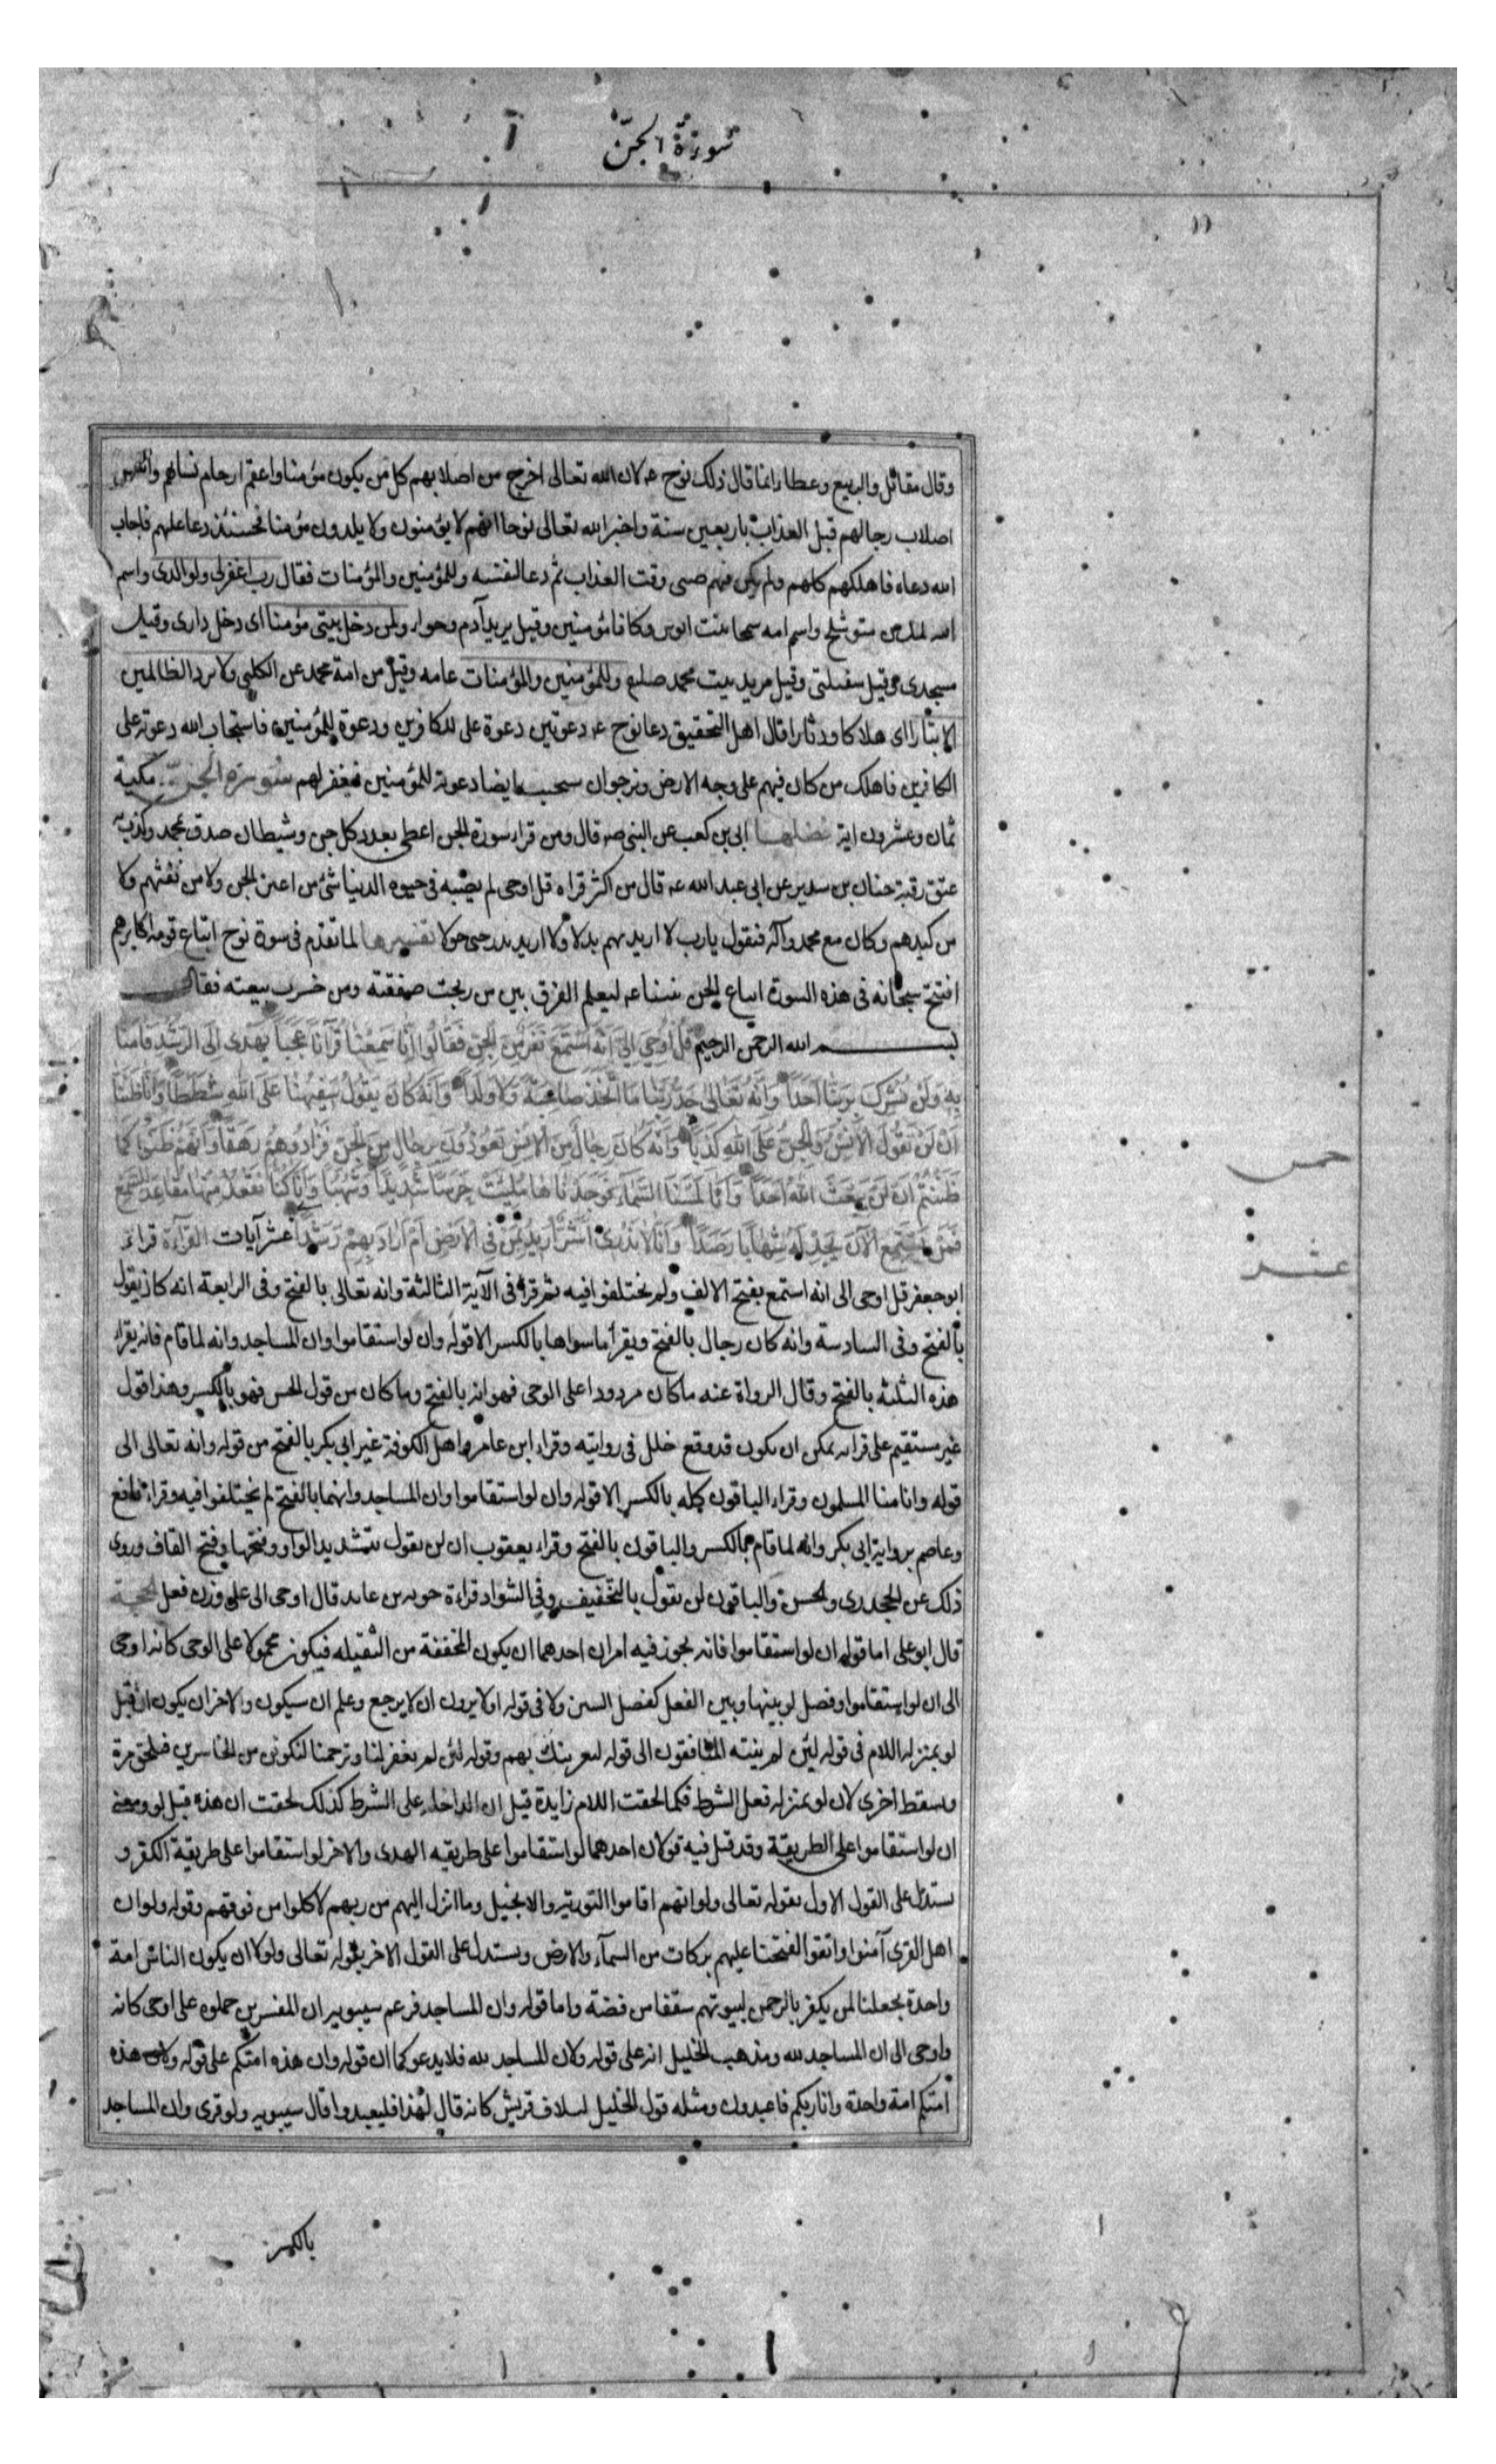 سورة الجن
وقال مقاتل والربيع وعطا وانما قال ذلك نوح ع لان الله تعالى اخرج من اصلابهم كل من يكون مؤمنا واعقم ارحام نسائهم و
اصلاب رجالهم قبل العذاب باربعين سنة واخبر الله تعالى نوحا انهم لا يؤمنون ولا يلدون مؤمنا فحينئذ دعا عليهم فاجاب
الله دعاه فاهلكهم كلهم ولم يكن فيهم صبى وقت العذاب ثم دعا لنفسه وللمؤمنين والمؤمنات فقال رب اغفر لى ولوالدى واسم
متوشلخ واسم امه سمحا بنت انوس وكانا مؤمنين وقيل يريد آدم وحوا ولمن دخل بيتى مؤمنا اى دخل دارى وقيل
مسجدى وقيل سفينتى وقيل يريد بيت محمد صلعم وللمؤمنين والمؤمنات عامه وقيل من امة محمد عن الكلبى ولا تزد الظالمين
الا تبارا اى هلاكا ودثارا قال اهل التحقيق دعا نوح ع دعوتين دعوة على الكافرين ودعوة للمؤمنين فاستجاب الله دعوته على
الكافرين فاهلك من كان فيهم على وجه الارض ونرجو ان يستجيب ايضا دعوته للمؤمنين فيغفر لهم سورة الجن مكية
ثمان وعشرون اية فضلها ابى بن كعب عن النبى ص قال ومن قراء سورة الجن اعطى بعدد كل جن وشيطان صدق بمحمد وكذب به
عتق رقبة حنان بن سدير عن ابى عبد الله ع قال من اكثر قراءة قل اوحى لم يصبه فى حيوة الدنيا شئ من اعين الجن ولا من نفثهم ولا
من كيدهم وكان مع محمد وآله فيقول يا رب لا اريد بهم بدلا ولا اريد بدرجتى حولا تفسيرها لما تقدم فى سورة نوح اتباع قومه اكابرهم
افتتح سبحانه فى هذه السورة اتباع الجن نبينا ع ليعلم الفرق بين من ربحت صفقته ومن خسرت بيعته فقال
بسم الله الرحمن الرحيم قُلْ أُوحِيَ إِلَيَّ أَنَّهُ اسْتَمَعَ نَفَرٌ مِنَ الْجِنِّ فَقَالُوا إِنَّا سَمِعْنَا قُرْآنًا عَجَبًا يَهْدِي إِلَى الرُّشْدِ فَآمَنَّا
بِهِ وَلَنْ نُشْرِكَ بِرَبِّنَا أَحَدًا وَأَنَّهُ تَعَالَى جَدُّ رَبِّنَا مَا اتَّخَذَ صَاحِبَةً وَلَا وَلَدًا وَأَنَّهُ كَانَ يَقُولُ سَفِيهُنَا عَلَى اللَّهِ شَطَطًا وَأَنَّا ظَنَنَّا
أَنْ لَنْ تَقُولَ الْإِنْسُ وَالْجِنُّ عَلَى اللَّهِ كَذِبًا وَأَنَّهُ كَانَ رِجَالٌ مِنَ الْإِنْسِ يَعُوذُونَ بِرِجَالٍ مِنَ الْجِنِّ فَزَادُوهُمْ رَهَقًا وَأَنَّهُمْ ظَنُّوا كَمَا
ظَنَنْتُمْ أَنْ لَنْ يَبْعَثَ اللَّهُ أَحَدًا وَأَنَّا لَمَسْنَا السَّمَاءَ فَوَجَدْنَاهَا مُلِئَتْ حَرَسًا شَدِيدًا وَشُهُبًا وَأَنَّا كُنَّا نَقْعُدُ مِنْهَا مَقَاعِدَ لِلسَّمْعِ
فَمَنْ يَسْتَمِعِ الْآنَ يَجِدْ لَهُ شِهَابًا رَصَدًا وَأَنَّا لَا نَدْرِي أَشَرٌّ أُرِيدَ بِمَنْ فِي الْأَرْضِ أَمْ أَرَادَ بِهِمْ رَبُّهُمْ رَشَدًا عشر آيات القراءة قراء
ابو جعفر قل اوحى الى انه استمع بفتح الالف ولم يختلفوا فيه ثم قراء فى الآية الثالثة وانه تعالى بالفتح وفى الرابعة انه كان يقول
بالفتح وفى السادسة وانه كان رجال بالفتح ويقرأ ما سواها بالكسر الا قوله وان لو استقاموا وان المساجد وانه لما قام فانه يقراء
هذه الثلثة بالفتح وقال الرواة عنه ما كان مردودا على الوحى فهو انه بالفتح وما كان من قول الجن فهو بالكسر وهذا قول
غير مستقيم على قراءته يمكن ان يكون قد وقع خلل فى روايته وقراء ابن عامر واهل الكوفة غير ابى بكر بالفتح من قوله وانه تعالى الى
قوله وانا منا المسلمون وقراء الباقون كله بالكسر الا قوله وان لو استقاموا وان المساجد وانهما بالفتح لم يختلفوا فيه وقراءة نافع
وعاصم برواية ابى بكر وانه لما قام بالكسر والباقون بالفتح وقراء يعقوب ان لن تقول بتشديد الواو وفتحها وفتح القاف وروى
ذلك عن الجحدرى والحسن والباقون لن تقول بالتخفيف وفى الشواذ قراءة جويه بن عايد قال اوحى الى على وزن فعل الحجة
قال ابو على اما قوله ان لو استقاموا فانه يجوز فيه امران احدهما ان يكون المخففة من الثقيله فيكون محمولا على الوحى كانه اوحى
الى ان لو استقاموا وفصل لو بينها وبين الفعل كفصل السين ولا فى قوله اولا يرون ان لا يرجع وعلم ان سيكون والاخر ان يكون ان قبل
لو بمنزلة اللام فى قوله لئن لم ينته المنافقون الى قوله لنغرينك بهم وقوله لئن لم يغفر لنا وترحمنا لنكونن من الخاسرين فتلحق مرة
وتسقط اخرى لان لو بمنزلة فعل الشرط فكما لحقت اللام زايدة قبل ان الداخلة على الشرط كذلك لحقت ان هذه قبل لو ومعنى
ان لو استقاموا على الطريقة وقد قيل فيه قولان احدهما لو استقاموا على طريقه الهدى والاخر لو استقاموا على طريقة الكفر و
يستدل على القول الاول بقوله تعالى ولو انهم اقاموا التورية والانجيل وما انزل اليهم من ربهم لاكلوا من فوقهم وقوله ولو ان
اهل القرى آمنوا واتقوا لفتحنا عليهم بركات من السمآء والارض ويستدل على القول الاخر بقوله تعالى ولولا ان يكون الناس امة
واحدة لجعلنا لمن يكفر بالرحمن لبيوتهم سقفا من فضة واما قوله وان المساجد فزعم سيبويه ان المفسرين حملوه على اوحى كانه
واوحى الى ان المساجد لله ومذهب الخليل انه على قوله ولان المساجد لله فلا يدعو كما ان قوله وان هذه امتكم على قوله ولان هذه
امتكم امة واحدة وانا ربكم فاعبدون ومثله قول الخليل لايلاف قريش كانه قال لهذا فليعبدوا قال سيبويه ولو قرى وان المساجد
خمس
عشر
بالكسر